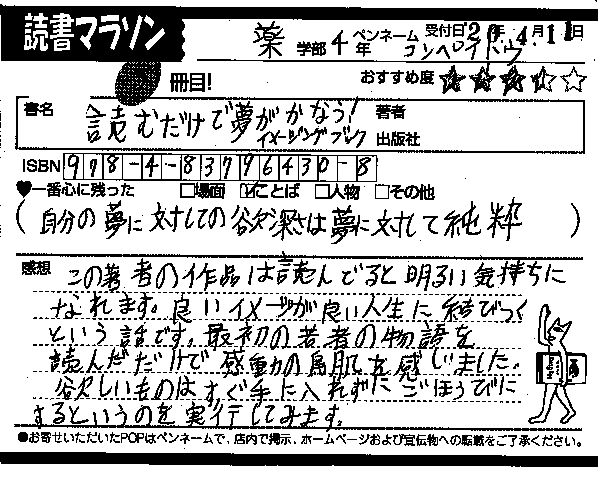 読書マラソン
薬 学部 4 年 ペンネーム コンペイトウ 受付日 20年 4月 11日
冊目!
おすすめ度 ★★★★☆
書名 読むだけで夢がかなう! イメージングブック
著者
出版社
ISBN 978-4-83796430-8
♥一番心に残った □場面 ☑ことば □人物 □その他
(自分の夢に対しての欲深さは夢に対して純粋)
感想 この著者の作品は読んでると明るい気持ちに
なれます。良いイメージが良い人生に結びつく
という話です。最初の若者の物語を
読んだだけで感動の鳥肌を感じました。
欲しいものはすぐ手に入れずにごほうびに
するというのを実行してみます。
●お寄せいただいたPOPはペンネームで、店内で掲示、ホームページおよび宣伝物への転載をご了承ください。